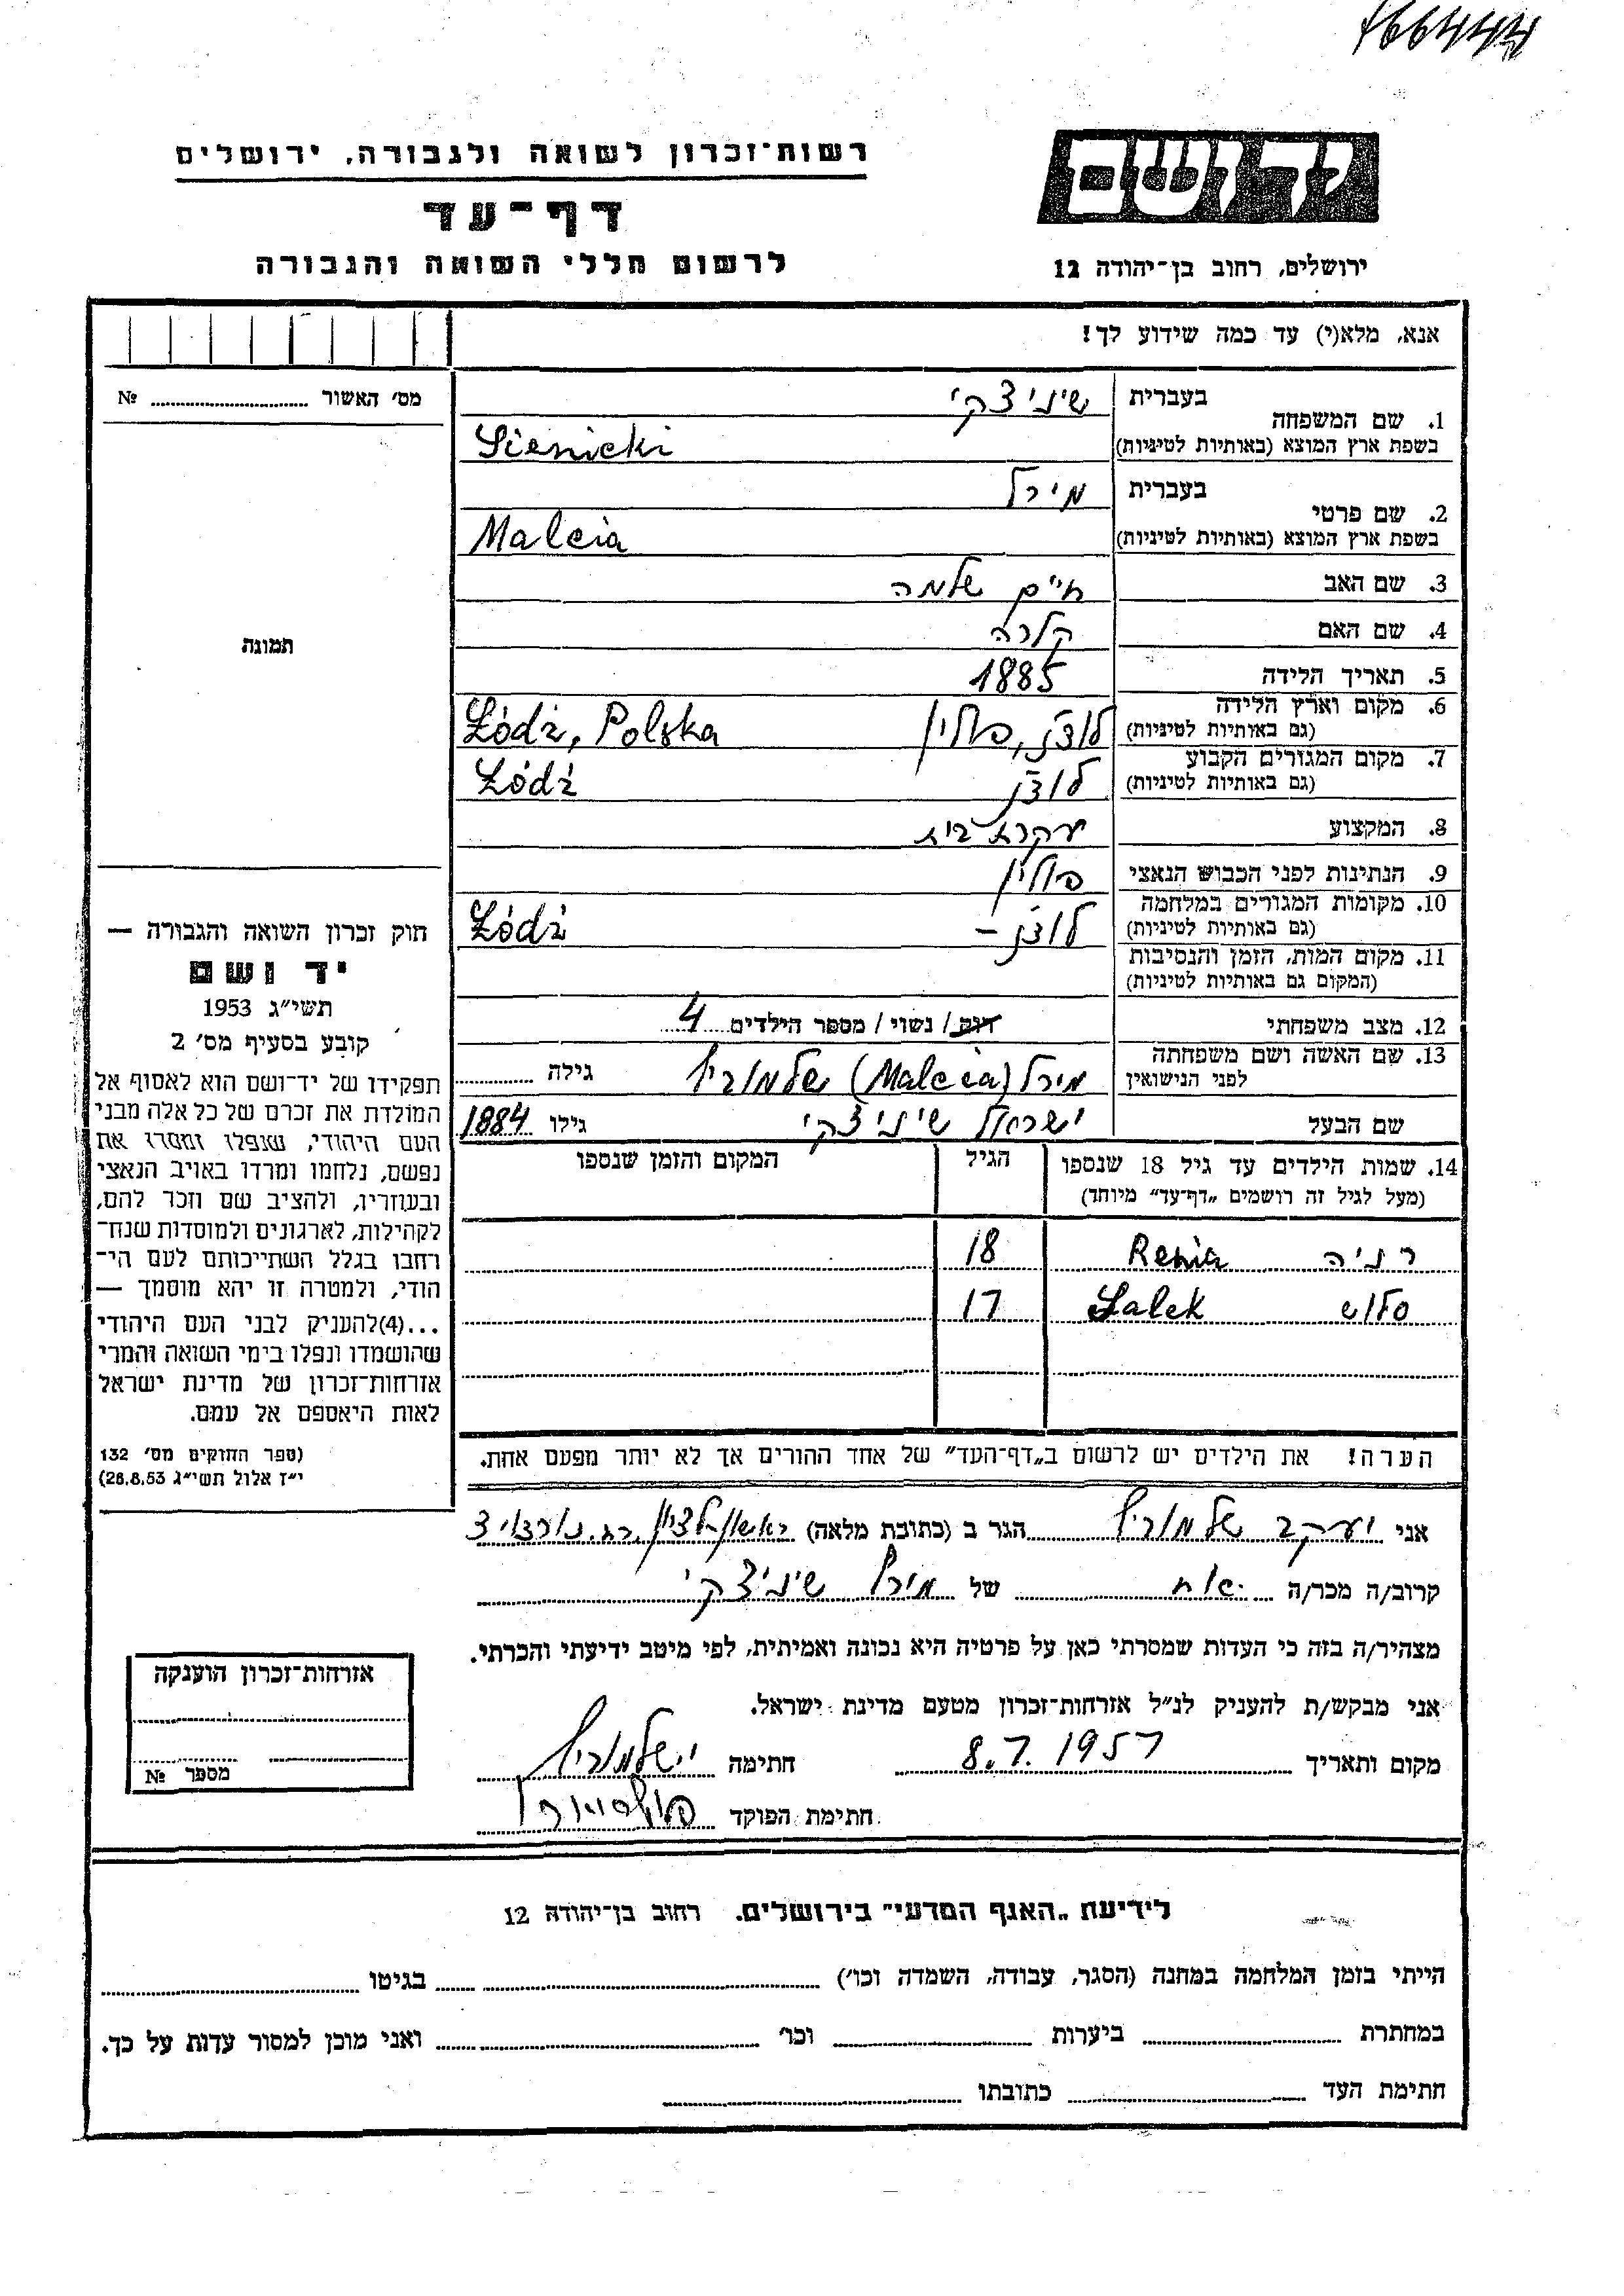 766444
יד ושם
רשות־זכרון לשואה ולגבורה, ירושלים
דף־עד
לרשום חללי השואה והגבורה
ירושלים, רחוב בן־יהודה 12
אנא, מלא(י) עד כמה שידוע לך!
מס׳ האשור ........ №
תמונה
1. שם המשפחה
בעברית שיניצקי
בשפת ארץ המוצא (באותיות לטיניות) Sienicki
2. שם פרטי
בעברית מירל
בשפת ארץ המוצא (באותיות לטיניות) Malcia
3. שם האב חיים שלמה
4. שם האם קלרה
5. תאריך הלידה 1885
6. מקום וארץ הלידה
(גם באותיות לטיניות) לודז, פולין Łódź, Polska
7. מקום המגורים הקבוע
(גם באותיות לטיניות) לודז Łódź
8. המקצוע עקרת בית
9. הנתינות לפני הכבוש הנאצי פולין
10. מקומות המגורים במלחמה
(גם באותיות לטיניות) לודז – Łódź
11. מקום המות, הזמן והנסיבות
(המקום גם באותיות לטיניות)
12. מצב משפחתי רווק / נשוי / מספר הילדים 4
13. שם האשה ושם משפחתה
לפני הנישואין מירל (Malcia) שלמוביץ גילה
שם הבעל ישראל שיניצקי גילו 1884
14. שמות הילדים עד גיל 18 שנספו הגיל המקום והזמן שנספו
(מעל לגיל זה רושמים „דף־עד״ מיוחד)
רניה Renia 18
Salek 17
הערה! את הילדים יש לרשום ב„דף־העד״ של אחד ההורים אך לא יותר מפעם אחת.
חוק זכרון השואה והגבורה —
יד ושם
תשי״ג 1953
קובע בסעיף מס׳ 2
תפקידו של יד־ושם הוא לאסוף אל
המולדת את זכרם של כל אלה מבני
העם היהודי, שנפלו ומסרו את
נפשם, נלחמו ומרדו באויב הנאצי
ובעוזריו, ולהציב שם וזכר להם,
לקהילות, לארגונים ולמוסדות שנח־
רבו בגלל השתייכותם לעם הי־
הודי, ולמטרה זו יהא מוסמך —
...(4)להעניק לבני העם היהודי
שהושמדו ונפלו בימי השואה והמרי
אזרחות־זכרון של מדינת ישראל
לאות היאספם אל עמם.
(ספר החוקים מס׳ 132
י״ז אלול תשי״ג 28.8.53)
אני יעקב שלמוביץ הגר ב (כתובת מלאה) ראשון־לציון
קרוב/ה מכר/ה אח של מירל שיניצקי
מצהיר/ה בזה כי העדות שמסרתי כאן על פרטיה היא נכונה ואמיתית, לפי מיטב ידיעתי והכרתי.
אני מבקש/ת להעניק לנ״ל אזרחות־זכרון מטעם מדינת ישראל.
מקום ותאריך 8.7.1957 חתימה י שלמוביץ
חתימת הפוקד
אזרחות־זכרון הוענקה
מספר №
לידיעת „האגף המדעי״ בירושלים. רחוב בן־יהודה 12
הייתי בזמן המלחמה במחנה (הסגר, עבודה, השמדה וכו׳) בגיטו
במחתרת ביערות וכו׳ ואני מוכן למסור עדות על כך.
חתימת העד כתובתו